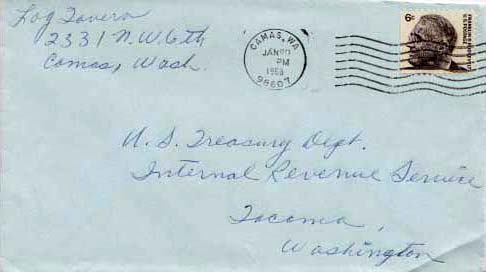 Log Tavern
2331 N.W. 6th
Camas, Wash.
CAMAS, WA
JAN
PM
98607
6¢
FRANKLIN D. ROOSEVELT
U.S. POSTAGE
U.S. Treasury Dept.
Internal Revenue Service
Tacoma,
Washington